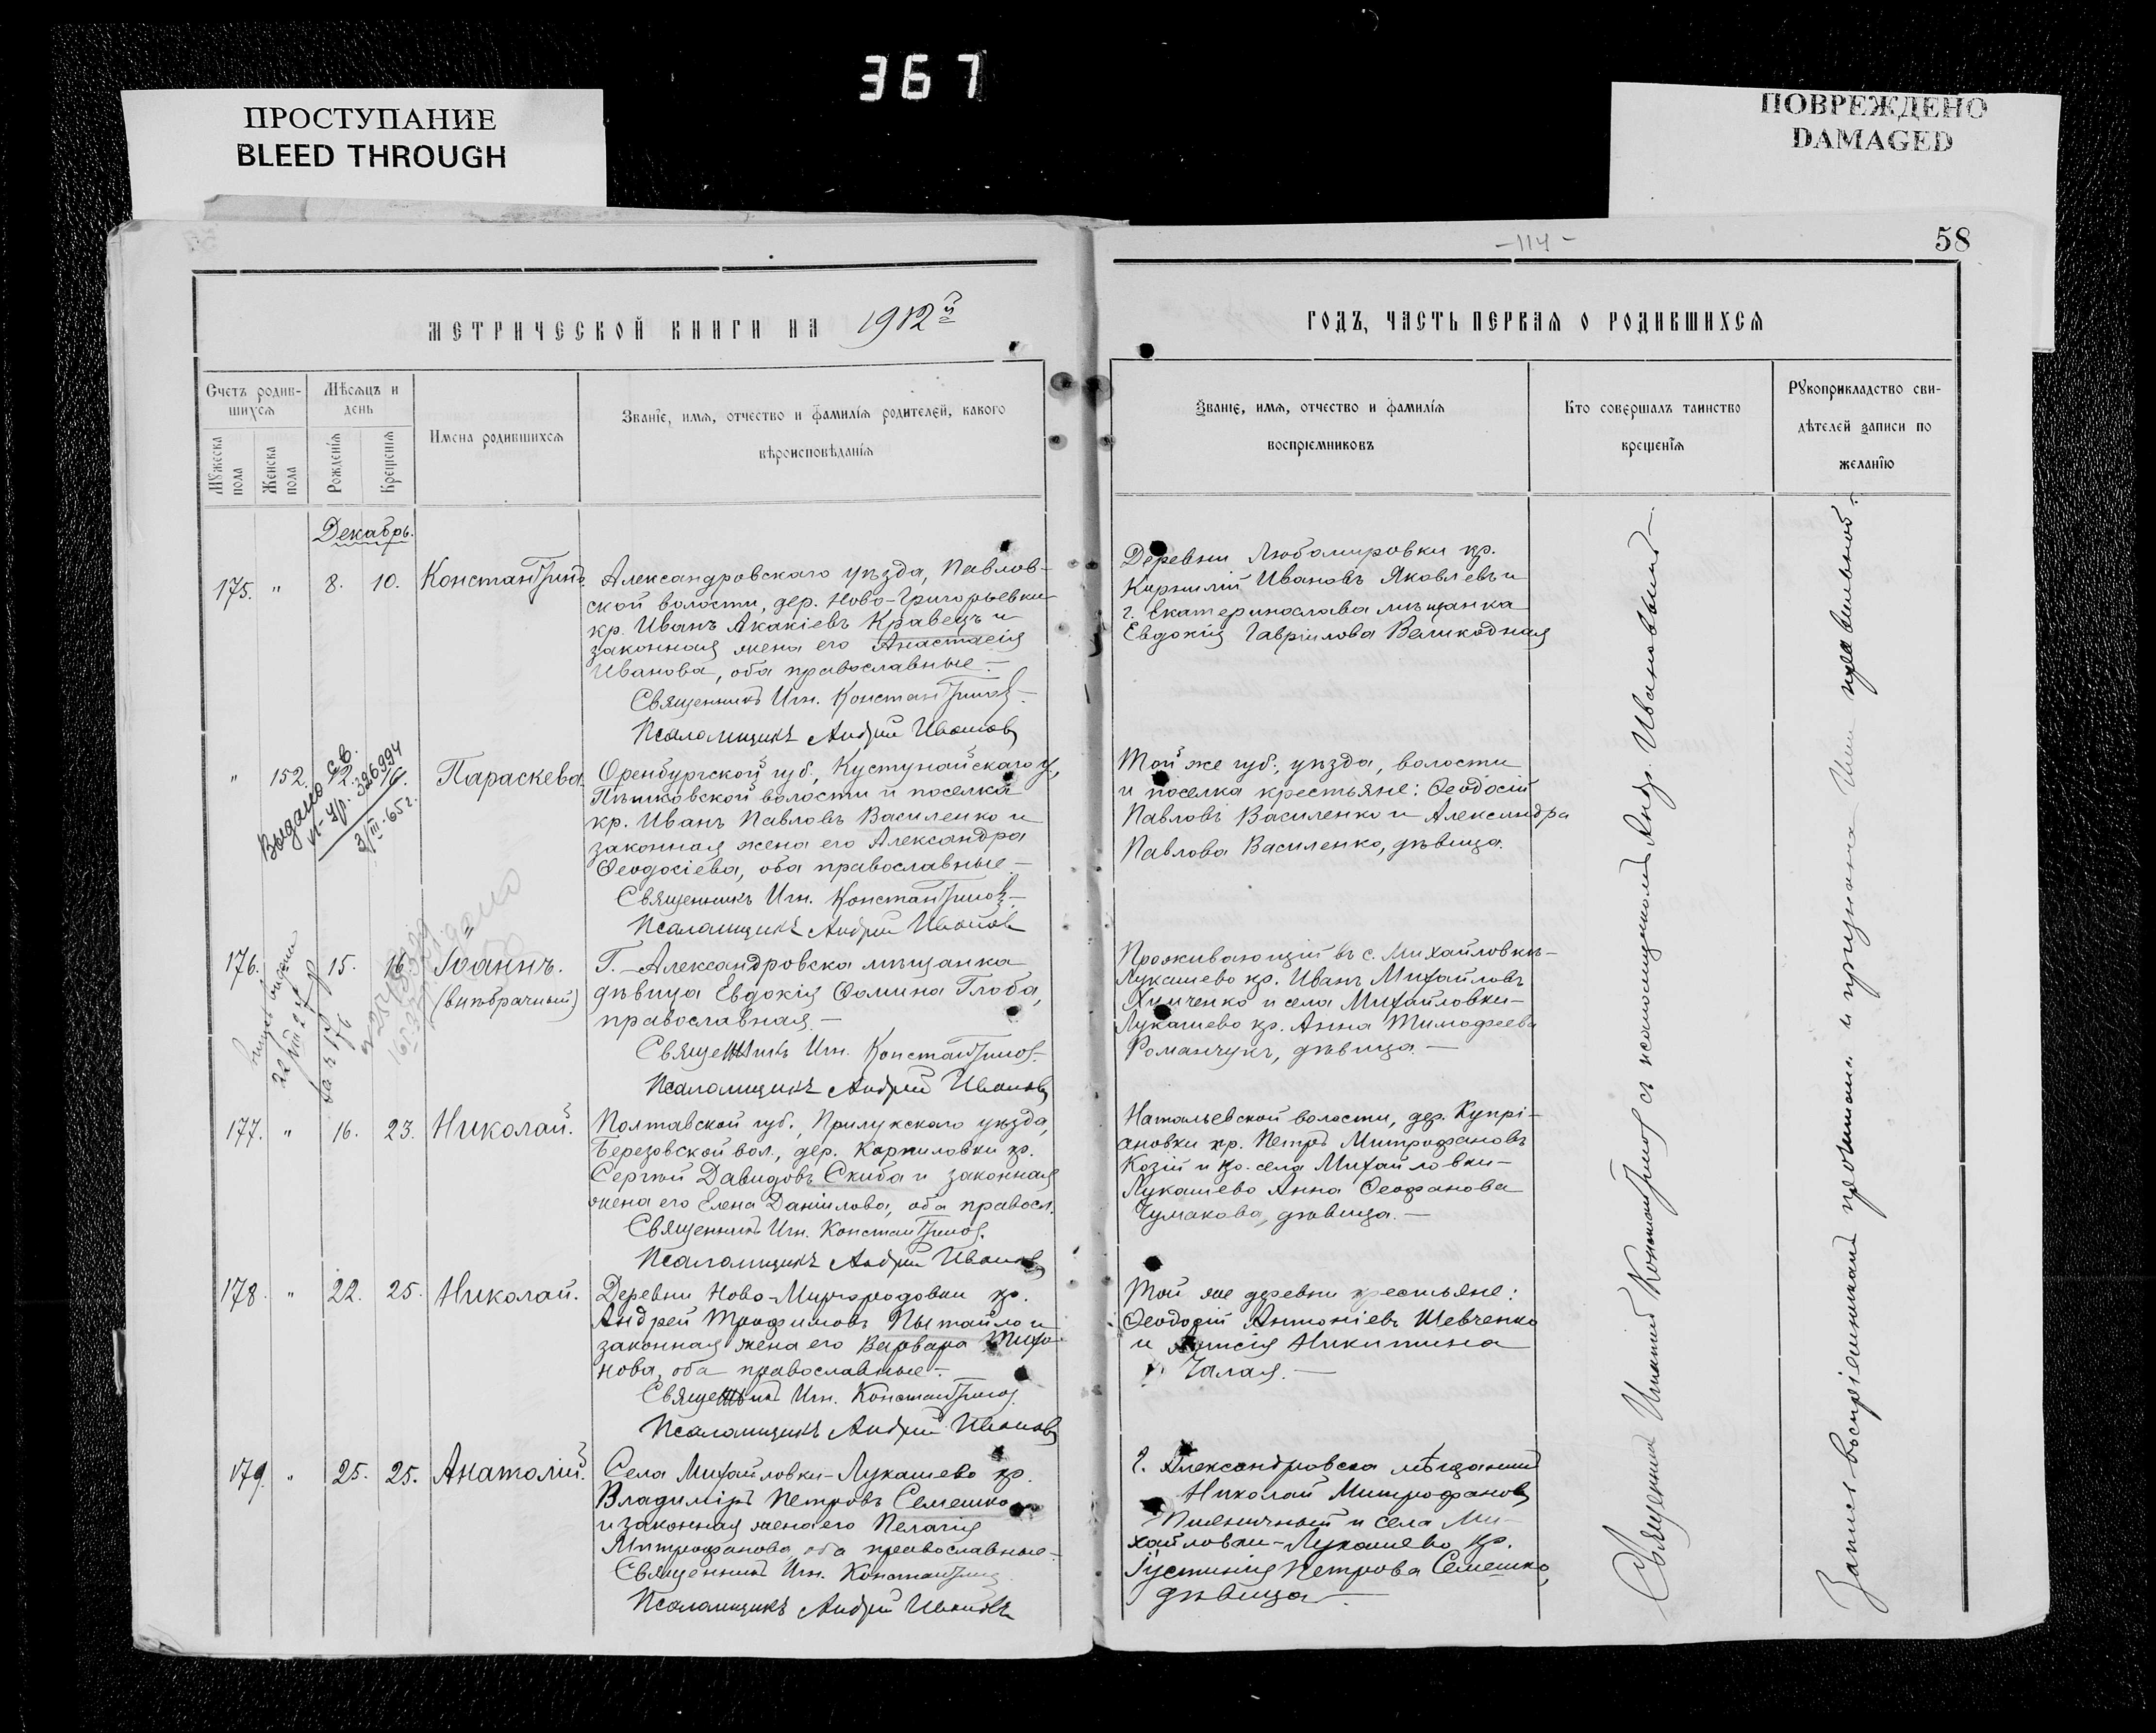 367
ПРОСТУПАНИЕ
BLEED THROUGH
ПОВРЕЖДЕНО
DAMAGED
- 114 -
58
МЕТРИЧЕСКОЙ КНИГИ НА 1912й
ГОДЪ, ЧАСТЬ ПЕРВАЯ О РОДИВШИХСЯ
Счетъ родив-
шихся
Мужеска
пола
Женска
пола
Мѣсяцъ и
день
Рожденія
Крещенія
Имена родившихся
Званіе, имя, отчество и фамилія родителей, какого
вѣроисповѣданія
Званіе, имя, отчество и фамилія
воспріемниковъ
Кто совершалъ таинство
крещенія
Рукоприкладство сви-
дѣтелей записи по
желанію
Декабрь.
175. " 8. 10. Константинъ.
Александровскаго уѣзда, Павлов-
ской волости, дер. Ново-Григорьевки
кр. Иванъ Акакіевъ Кравецъ и
законная жена его Анастасія
Иванова, оба православные.-
Священникъ Игн. Константинов.
Псаломщикъ Андрей Иванов
Деревни Любомировки кр.
Корнилій Ивановъ Яковлевъ и
г. Екатеринослава мѣщанка
Евдокія Гавріилова Великодная
" 152. 12. 16. Параскева.
Выдано св.
И-УР. 326994
3/III-65г.
Оренбургской губ., Кустунайскаго у.,
Пѣшковской волости и поселка
кр. Иванъ Павловъ Василенко и
законная жена его Александра
Ѳеодосіева, оба православные.-
Священникъ Игн. Константинов.
Псаломщикъ Андрей Иванов
Той же губ., уѣзда, волости
и поселка крестьяне: Ѳеодосій
Павловъ Василенко и Александра
Павлова Василенко, дѣвица.
176. " 15. 16. Іоаннъ.
(внѣбрачный)
Г. Александровска мѣщанка
дѣвица Евдокія Ѳомина Глоба,
православная.-
Священникъ Игн. Константинов.
Псаломщикъ Андрей Иванов
Проживающій въ с. Михайловкѣ-
Лукашево кр. Иванъ Михайловъ
Химченко и села Михайловки-
Лукашево кр. Анна Тимофеева
Романчукъ, дѣвица.-
177. " 16. 23. Николай.
Полтавской губ., Прилукскаго уѣзда,
Березовской вол., дер. Корниловки кр.
Сергѣй Давидовъ Скиба и законная
жена его Елена Даніилова, оба правосл.
Священникъ Игн. Константинов.
Псаломщикъ Андрей Иванов
Натальевской волости, дер. Купрі-
ановки кр. Петръ Митрофановъ
Козій и кр. села Михайловки-
Лукашево Анна Ѳеофанова
Чумакова, дѣвица.-
178. " 22. 25. Николай.
Деревни Ново-Миргородовки кр.
Андрей Трофимовъ Пытайло и
законная жена его Варвара Тихо-
нова, оба православные.-
Священникъ Игн. Константинов.
Псаломщикъ Андрей Иванов
Той же деревни крестьяне:
Ѳеодосій Антоніевъ Шевченко
и Никитина
Чалая.-
179. " 25. 25. Анатолій.
Села Михайловки-Лукашево кр.
Владиміръ Петровъ Семешко
и законная жена его Пелагія
Митрофанова, оба православные.-
Священникъ Игн. Константинов
Псаломщикъ Андрей Иванов
г. Александровска мѣщанинъ
Николай Митрофановъ
Пшеничный и села Ми-
хайловки-Лукашево кр.
Іустинія Петрова Семешко,
дѣвица.-
Священникъ Игнатій Константинов съ псаломщикомъ Андр. Ивановымъ.-